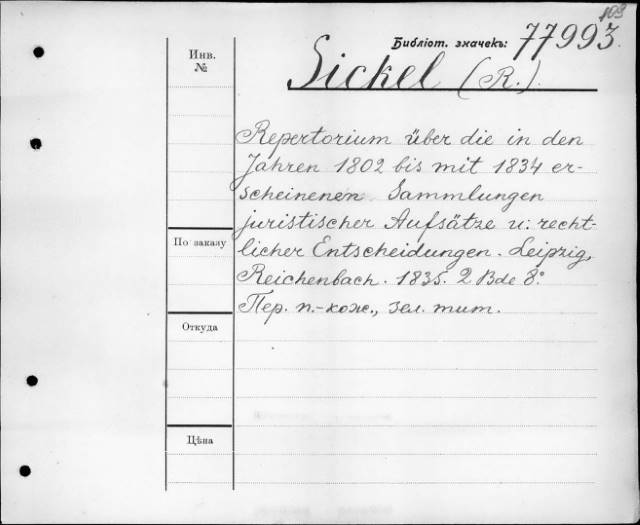 103
Библіот. значекъ: 77993.
Инв.
№
Sickel (R.).
Repertorium über die in den
Jahren 1802 bis mit 1834 er-
scheinenen Sammlungen
juristischer Aufsätze u: recht-
licher Entscheidungen. Leipzig,
Reichenbach. 1835. 2 Bde 8.°
Пер. п.-кож., зел. тит.
По заказу
Откуда
Цѣна